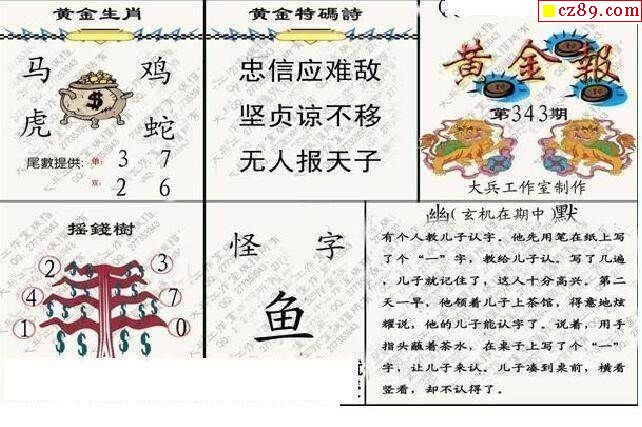 cz89.com
黄金生肖
马 鸡
虎 蛇
$
尾數提供: 单: 3 7
双: 2 6
黄金特碼詩
忠信应难敌
坚贞谅不移
无人报天子
黄金報
第343期
大兵工作室制作
摇錢樹
2 3
4 7
1 0
怪 字
鱼
幽(玄机在期中)默
有个人教儿子认字。他先用笔在纸上写
了个“一”字，教给儿子认。写了几遍
，儿子就记住了，这人十分高兴。第二
天一早，他领着儿子上茶馆，得意地炫
耀说，他的儿子能认字了。说着，用手
指头蘸着茶水，在桌子上写了个“一”
字，让儿子来认。儿子凑到桌前，横看
竖看，却不认得了。